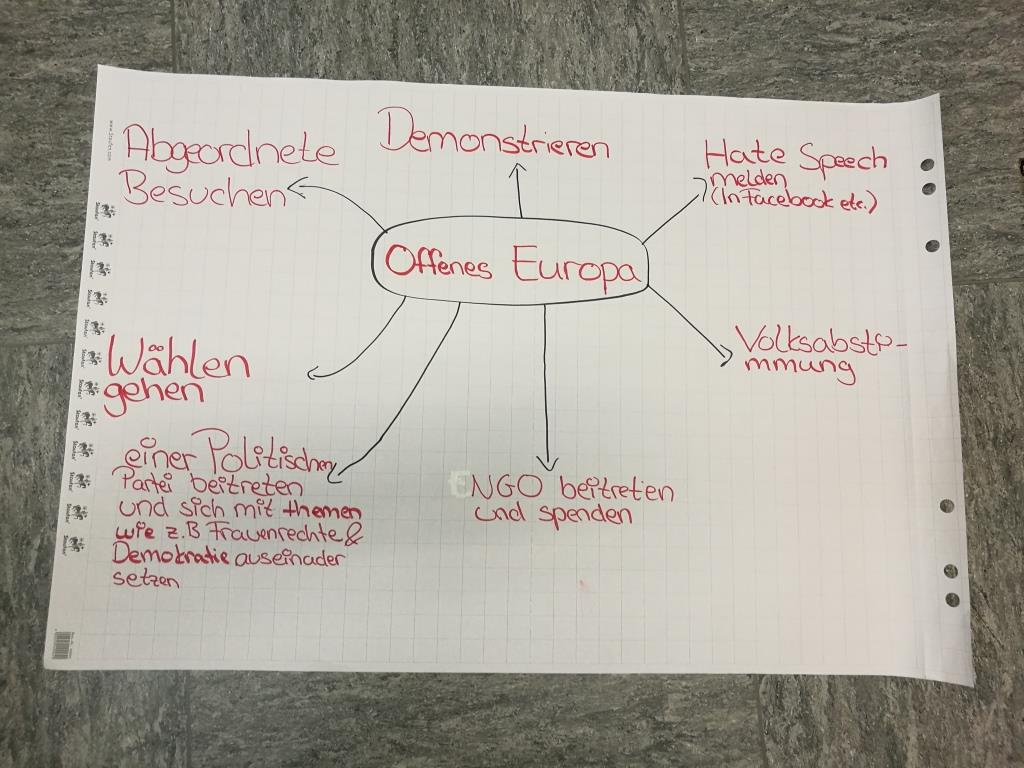 Abgeordnete
Besuchen
Demonstrieren
Hate Speech
melden
(in Facebook etc.)
Offenes Europa
Wählen
gehen
Volksabsti-
mmung
einer Politischen
Partei beitreten
und sich mit themen
wie z.B Frauenrechte &
Demokratie auseinader
setzen
NGO beitretien
und spenden